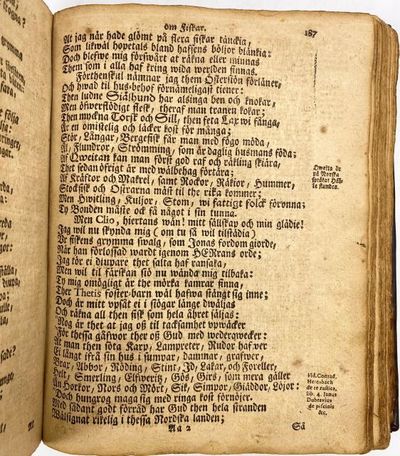 om Fiskar.
187
At jag når hade glömt på flera fiskar tänckia,
Som likwäl hopetals bland hafsens böljor blänkia:
Doch blefwe mig förswårt at räkna eller minnas
Them som i alla haf kring wida werlden finnas.
Förthenskul nämnar jag them Östersiön förläner,
Och hwad til hus-behof förnämeligast tiener:
Then ludne Siälhund har alsinga ben och knokar,
Men öfwerflödigt fleſk, theraf man tranen kokar;
Then myckna Torsk och Sill, then feta Lax wi fånga,
Är en omistelig och säcker kost för många;
Stör, Långar, Bergefisk får man med fogo möda,
Ål, Flundror, Strömming, som är daglig husmans föda;
Af Qweitan kan man först god raf och räkling skiära,
Thet sedan öfrigt är med wälbehag förtära;
Af Kräftor och Makrel, samt Rockor, Räkior, Hummer,
Stockfisk och Ostrarna mät til the rika kommer;
Men Hwitling, Kuljor, Stom, wi fattigt folck förunna;
Ty Bonden måste ock få något i sin tunna.
Men Clio, hiertans wän! mitt sällskap och min glädie!
Jag wil nu skynda mig (om tu så wil tilstädia)
Ur fiskens grymma swalg, som Jonas fordom giorde,
När han förlossad wardt igenom HERrans orde:
Jag tör ei diupare thet salta haf ransaka,
Men wil til färskan siö nu wända mig tilbaka:
Ty mig omögligt är the mörka kamrar finna,
Ther Thetis foster-barn wäl hafwa stängt sig inne;
Doch är mitt upsåt ei i siögar länge dwäljas
Och räkna all then fisk som hela åhret säljas:
Nog är thet at jag oß til tacksamhet upwäcker
För thessa gåfwor ther oß Gud med wederqwecker:
At man then sota Karp, Lampreter, Rudor haf wer
Ei långt ifrå sin hus i sumpar, dammar, grafwer,
Brax, Abbor, Röding, Stint, Id, Lakar, och Foreller,
Helt, Smerling, Elfweritz, Gös, Girs, som mera gäller
Än Horkor, Nors och Mört, Sik, Simpor, Giäddor, Löjor:
Doch hungrog maga sig med ringa kost förnöjer.
Med sådant godt förråd har Gud then hela stranden
Wälsignat rikelig i thessa Nordska landen;
Aa 2
Så
Qweita de
på Norska
språket Helle
flundra.
Vid. Conrad.
Heresbach
de re rustica,
lib. 4. Janus
Dubravius
de piscinis
&c.